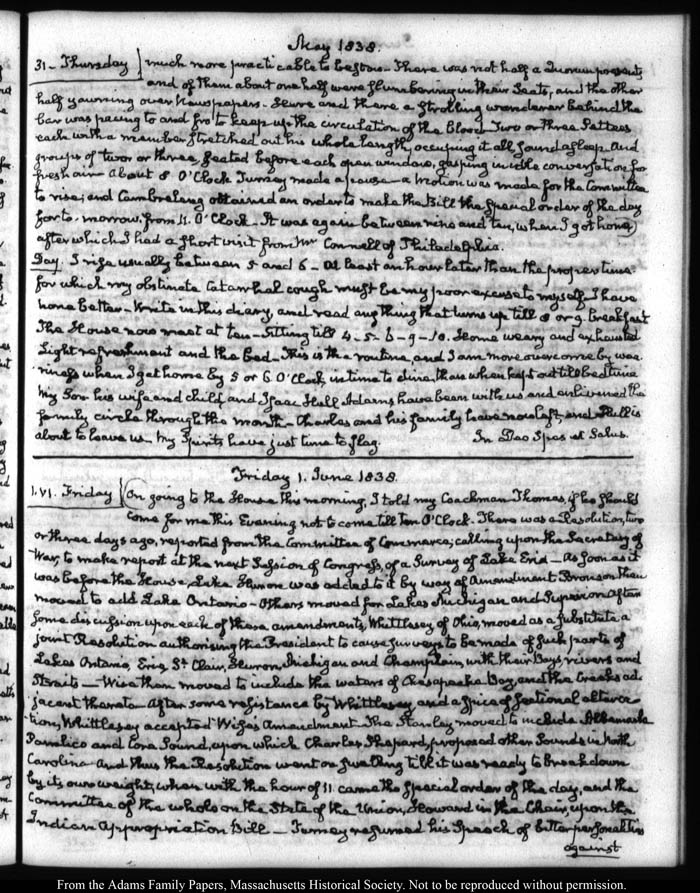 May 1838.
31. Thursday much more practicable to bestow. There was not half a Quorum present,
and of them about one half were slumbering in their Seats, and the other
half yawning over Newspapers. Here and there a strolling wanderer behind the
bar was pacing to and fro to keep up the circulation of the blood. Two or three Settees
each with a member stretched out his whole length, occupying it all, sound asleep. And
groups of two or three, seated before each open window, gasping in idle conversation for
fresh air. About 8 O'Clock Turney made a pause. a motion was made for the Committee
to rise; and Cambreleng obtained an order to make the Bill the special order of the day
for to-morrow, from 11. O'Clock. It was again between nine and ten, when I got home,
after which I had a short visit from Mr Connell of Philadelphia.
Day. I rise usually between 5 and 6 – at least an hour later than the proper time
for which my obstinate Catarrhal cough must be my poor excuse to myself. I have
none better. Write in this diary, and read any thing that turns up till 8 or 9. breakfast
The House now meet at ten – Sitting till 4 – 5 – 6 – 9 – 10. Home weary and exhausted
Light refreshment and the bed. This is the routine, and I am more overcome by wea-
riness when I get home by 5 or 6 O'Clock, in time to dine, than when kept out till bed time
My Son his wife and child, and Isaac Hull Adams have been with us and enlivened the
family circle through the month. Charles and his family have now left, and Hull is
about to leave us. My Spirits have just time to flag. In Deo Spes et Salus.
Friday 1. June 1838.
1. VI. Friday On going to the House this morning, I told my Coachman Thomas, if he should
come for me this Evening not to come till Ten O'Clock. There was a Resolution, two
or three days ago, reported from the Committee of Commerce, calling upon the Secretary of
War, to make report at the next Session of Congress, of a Survey of Lake Erie – As soon as it
was before the House, Lake Huron was added to it by way of Amendment. Bronson then
moved to add Lake Ontario – Others moved for Lakes Michigan and Superior. After
some discussion upon each of these amendments, Whittlesey of Ohio, moved as a substitute a
joint Resolution authorising the President to cause surveys to be made of such parts of
Lakes Ontario, Erie, St. Clair, Huron, Michigan and Champlain, with their Bays, rivers and
Straits – Wise then moved to include the waters of Chesapeake Bay, and the Creeks ad-
jacent thereto. After some resistance by Whittlesey and a spice of sectional alterca-
tion, Whittlesey accepted Wise's Amendment. The Stanley moved to include Albemarle
Pamlico and Core Sound, upon which Charles Shepard, proposed other Sounds in North
Carolina. And thus the Resolution went on swelling till it was ready to break down
by its own weight, when with the hour of 11. came the special order of the day, and the
Committee of the whole on the State of the Union, Howard in the Chair, upon the
Indian Appropriation Bill – Turney resumed his Speech of bitter personalities
against
From the Adams Family Papers, Massachusetts Historical Society. Not to be reproduced without permission.